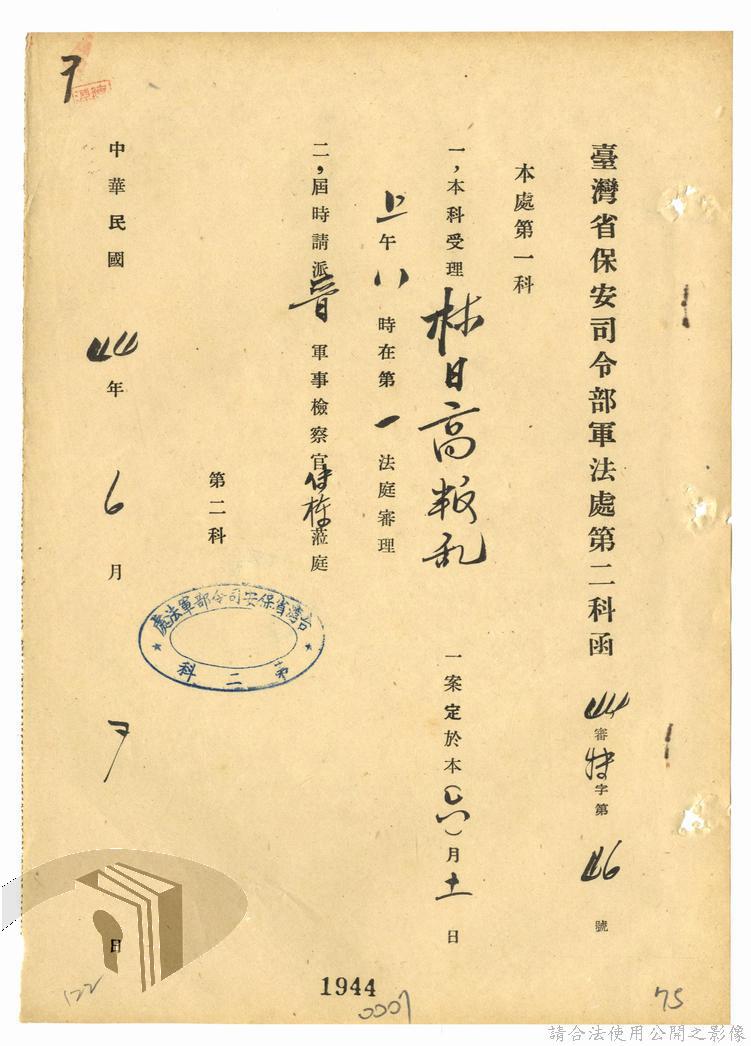 臺灣省保安司令部軍法處第二科函 44審特字第46號
本處第一科
一，本科受理林日高叛乱一案定於本(六)月十一日
上午八時在第一法庭審理
二，屆時請派 軍事檢察官 蒞庭
第二科
台灣省保安司令部軍法處
第二科
中華民國44年6月 日
1944
0007
75
122
請合法使用公開之影像